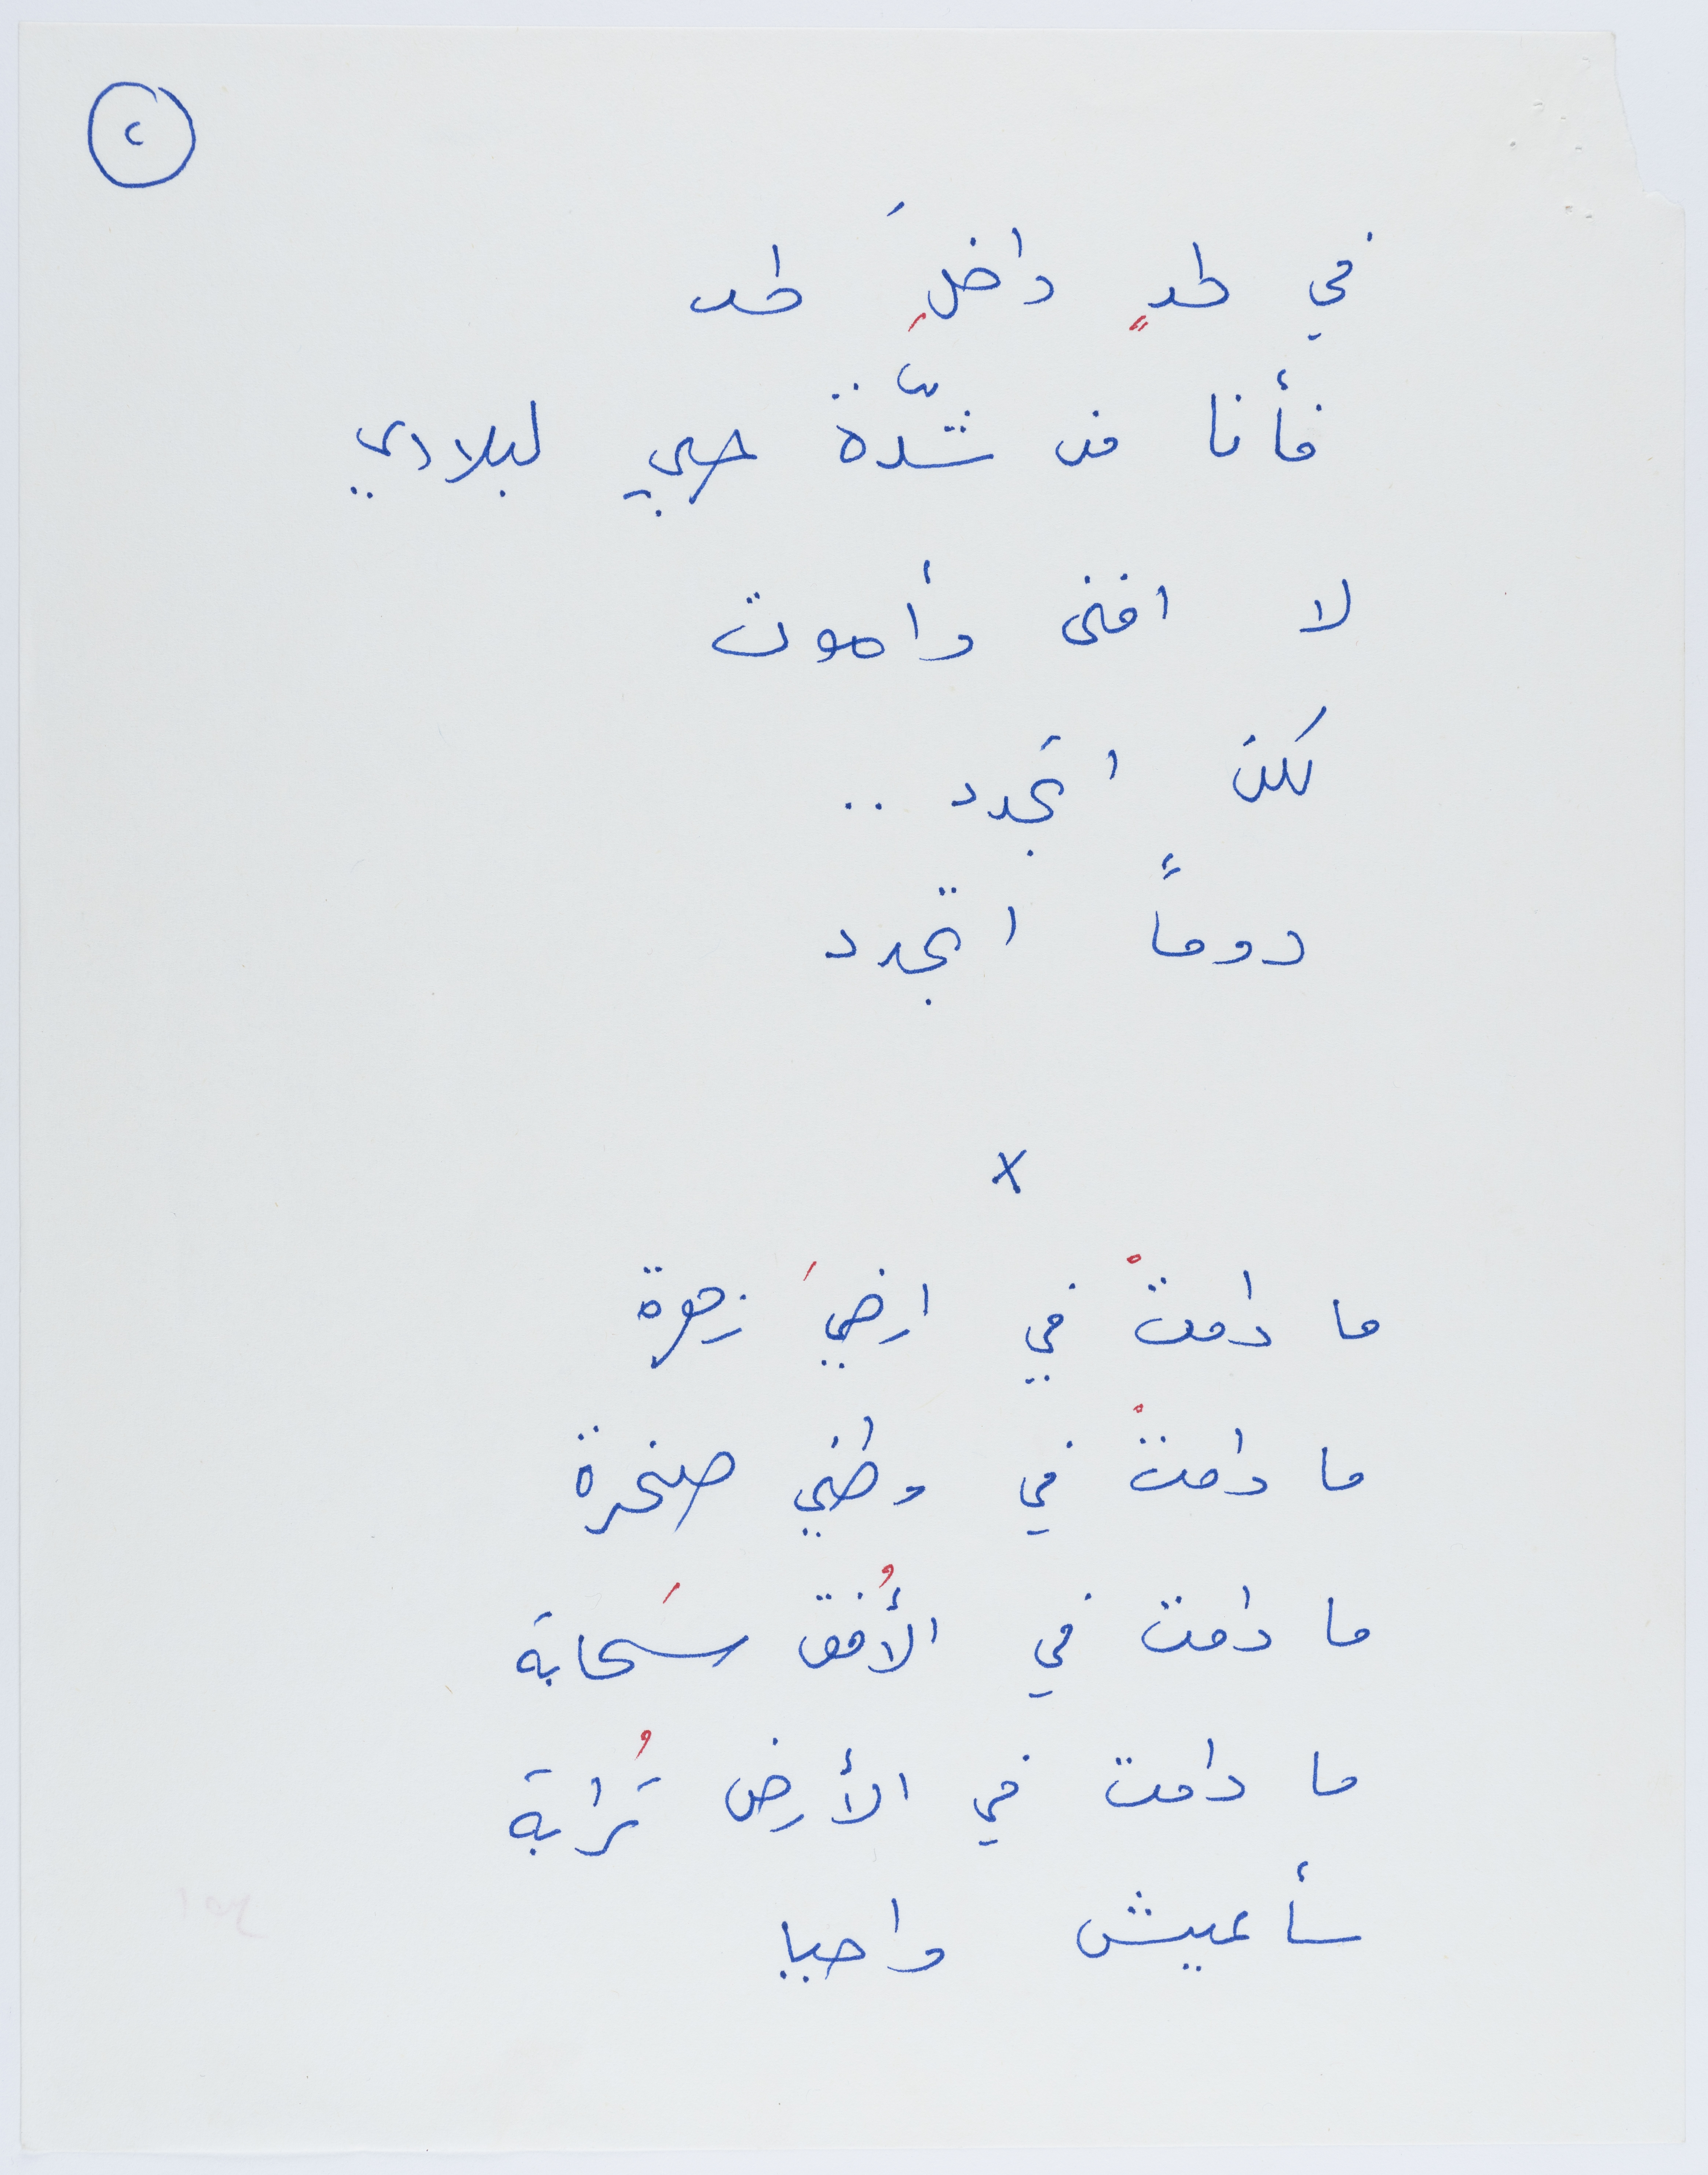 ٢
في لحدٍ داخلَِ لحد
فأنا من شدّة حبي لبلادي
لا افنى وأموت
لكن اتجدد ..
دوماً اتجدد
x
ما دامتْ في ارضيَ زهرة
ما دامتْ في وطني صخرة
ما دامت في الأُفق سَحابة
ما دامت في الأرض تُرابة
سأعيش واحيا